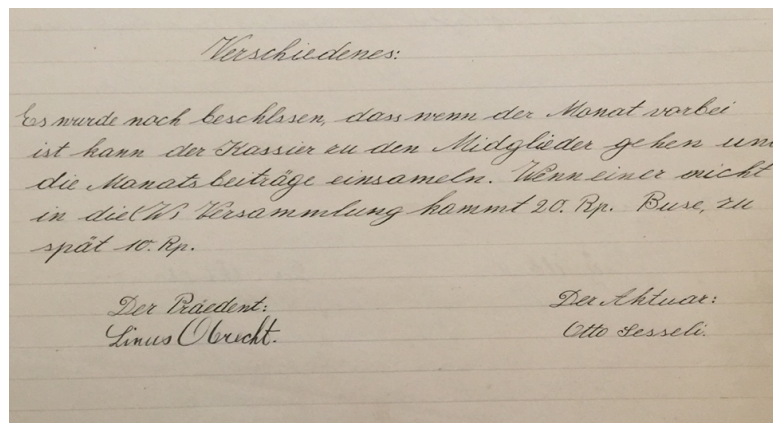 Verschiedenes:
Es wurde noch beschlssen, dass wenn der Monat vorbei
ist kann der Kassier zu den Midglieder gehen und
die Monatsbeiträge einsameln. Wenn einer nicht
in die (W) Versammlung kommt 20. Rp. Buse, zu
spät 10. Rp.
Der Präedent: Der Aktuar:
Linus Obrecht. Otto Sesseli.